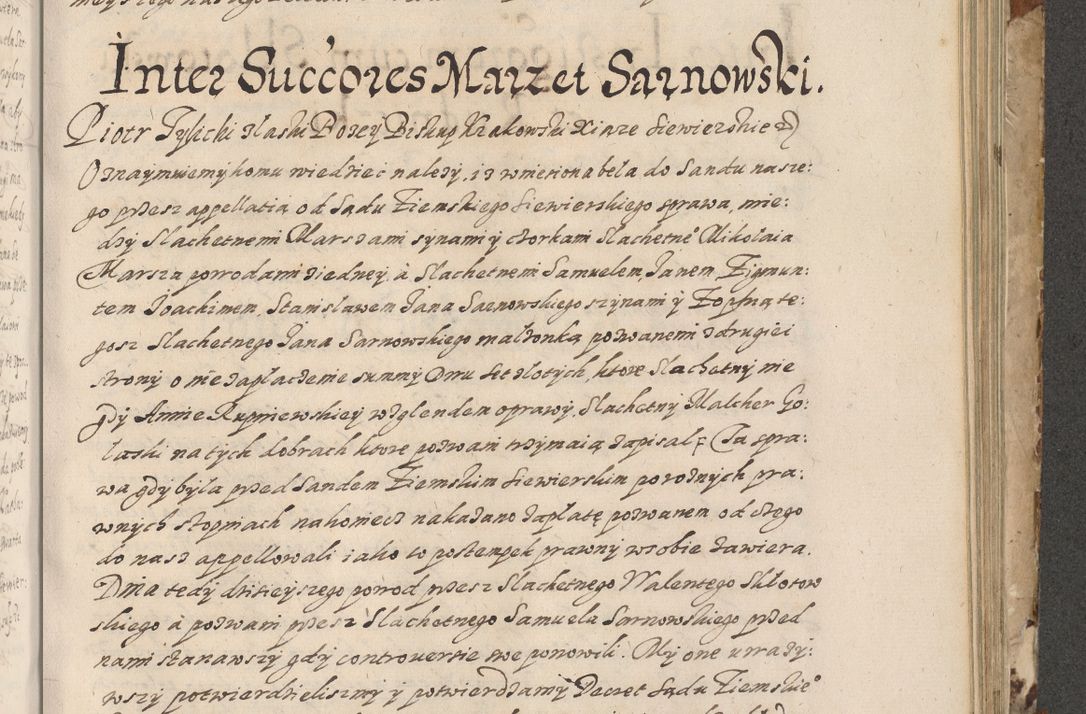 Inter Succores Marzet Sarnowski.
Piotr Tylicki z łaski Bozey Biskup Krakowski Xiąze Siewierskie
Oznaymuiemy komu wiedziec nalezy, iz wniesiona beła do Sandu nasze:
go przesz appellatią od Sądu Ziemskiego Siewierskiego sprawa, mie:
dzy Slachetnemi Marszami synami y czorkami Slachetne° Mikołaia
Marsza powodami ziedney, à Slachetnemi Samuelem, Janem, Zigmun:
tem Joachimem, Stanisławem Jana Sarnowskiego szynami y Zophią te:
gosz Slachetnego Jana Sarnowskiego małzonką pozwanemi zdrugiei
strony o nie zapłaczenie summy Dwu set złotych, ktore Slachetny nie
gdy Annie Rupniewskiey wzglendem oprawy, Slachetny Malcher Go:
laski na tych dobrach ktore pozwani trzymaią zapisał, Ta spra:
wa gdy była przed Sandem Ziemskim Siewierskim poroznych pra:
wnych stopniach nakoniecz nakazano zapłatę pozwanem od czego
do nasz appellowali iako to postempek prawny wsobie zawiera.
Dnia tedy dzisieyszego powod przesz Slachetnego Walentego Skłotow
skiego a pozwani przesz Slachetnego Samuela Sarnowskiego przed
nami stanawszy gdy controuersie swe ponowili. My one uwazy:
wszy potwierdzieliszmy y potwierdzamy Decret Sądu Ziemskie°